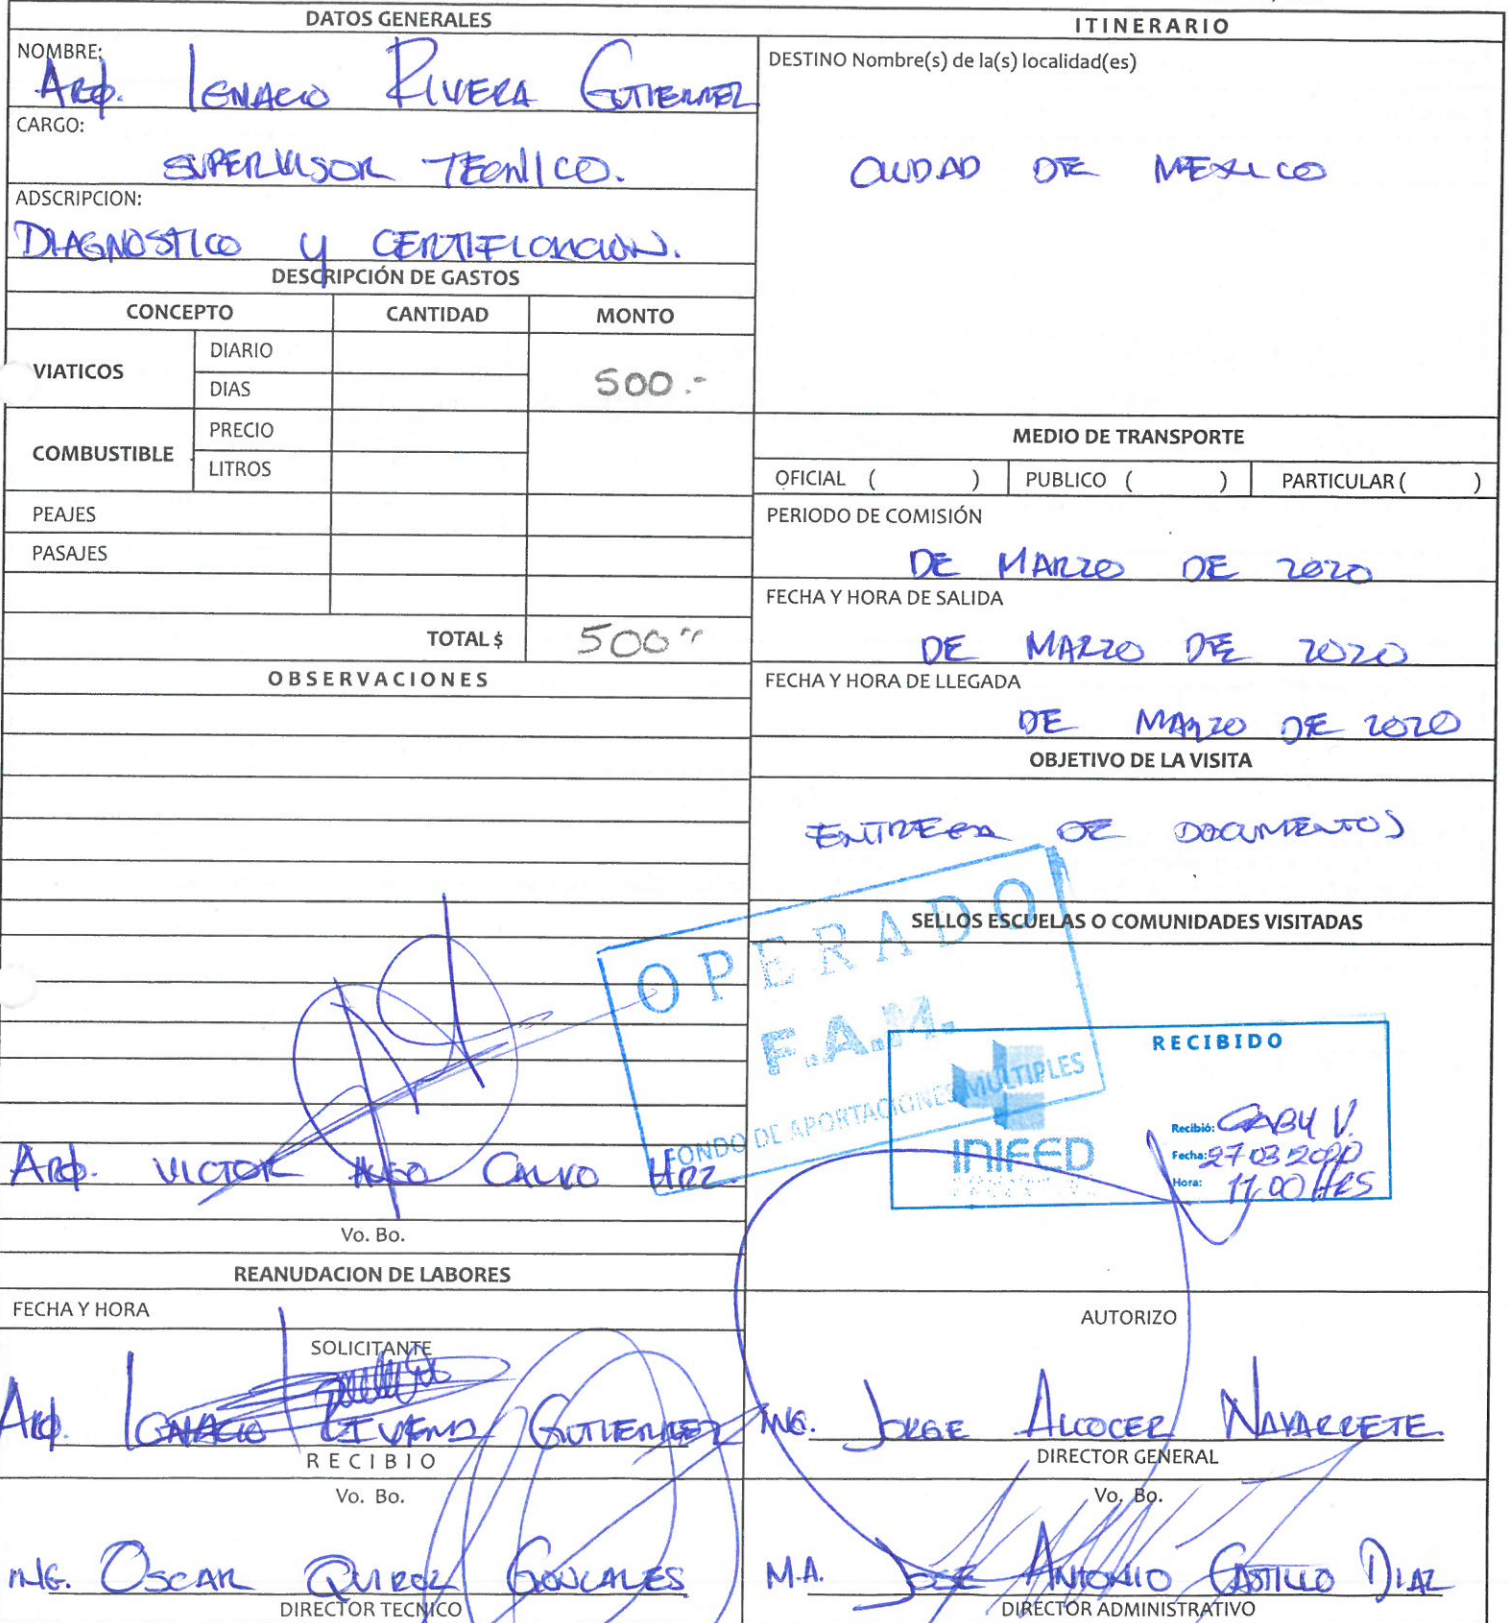 DATOS GENERALES
NOMBRE:
ARQ. IGNACIO RIVERA GUTIERREZ
CARGO:
SUPERVISOR TECNICO.
ADSCRIPCION:
DIAGNOSTICO Y CERTIFICACION.
DESCRIPCIÓN DE GASTOS
CONCEPTO CANTIDAD MONTO
VIATICOS DIARIO
DIAS
500.-
COMBUSTIBLE PRECIO
LITROS
PEAJES
PASAJES
TOTAL $ 500"
OBSERVACIONES
ARQ. VICTOR HUGO CALVO HRZ.
Vo. Bo.
REANUDACION DE LABORES
FECHA Y HORA
SOLICITANTE
ARQ. IGNACIO RIVERA GUTIERREZ
RECIBIO
Vo. Bo.
ING. OSCAR QUIROZ GONZALES
DIRECTOR TECNICO
ITINERARIO
DESTINO Nombre(s) de la(s) localidad(es)
CIUDAD DE MEXICO
MEDIO DE TRANSPORTE
OFICIAL ( ) PUBLICO ( ) PARTICULAR ( )
PERIODO DE COMISIÓN
DE MARZO DE 2020
FECHA Y HORA DE SALIDA
DE MARZO DE 2020
FECHA Y HORA DE LLEGADA
DE MARZO DE 2020
OBJETIVO DE LA VISITA
ENTREGA DE DOCUMENTOS
SELLOS ESCUELAS O COMUNIDADES VISITADAS
OPERADO
F.A.M.
FONDO DE APORTACIONES MULTIPLES
RECIBIDO
INIFED
Recibió: GABY V.
Fecha: 27 03 2020
Hora: 11:00 HRS
AUTORIZO
ING. JORGE ALCOCER NAVARRETE.
DIRECTOR GENERAL
Vo. Bo.
M.A. JOSE ANTONIO CASTILLO DIAZ
DIRECTOR ADMINISTRATIVO